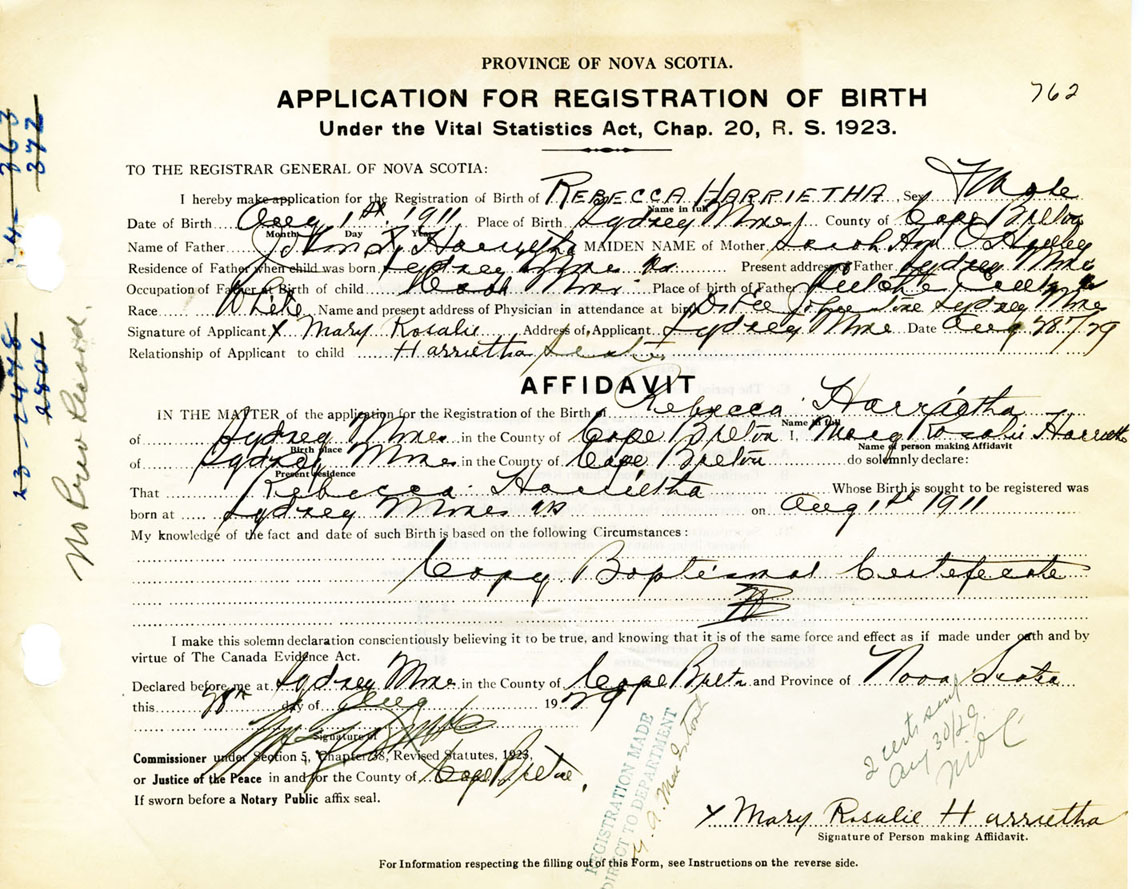 PROVINCE OF NOVA SCOTIA.
762
APPLICATION FOR REGISTRATION OF BIRTH
Under the Vital Statistics Act, Chap. 20, R. S. 1923.
TO THE REGISTRAR GENERAL OF NOVA SCOTIA:
I hereby make application for the Registration of Birth of REBECCA HARRIETHA Sex Female
Name in full
Date of Birth Aug 1st 1911 Place of Birth Sydney Mines County of Cape Breton
Month Day Year
Name of Father John Harrietha MAIDEN NAME of Mother Sarah Ann
Residence of Father when child was born Sydney Mines ns Present address of Father Sydney Mines
Occupation of Father at Birth of child Coal Miner Place of birth of Father
Race White Name and present address of Physician in attendance at birth Sydney Mines
Signature of Applicant X Mary Rosalie Address of Applicant Sydney Mines Date Aug 28/29
Relationship of Applicant to child Harrietha
AFFIDAVIT
IN THE MATTER of the application for the Registration of the Birth of Rebecca Harrietha
Name in full
of Sydney Mines in the County of Cape Breton I, Mary Rosalie Harrietha
Birth place Name of person making Affidavit
of Sydney Mines in the County of Cape Breton do solemnly declare:
Present residence
That Rebecca Harrietha Whose Birth is sought to be registered was
born at Sydney Mines ns on Aug 1st 1911
My knowledge of the fact and date of such Birth is based on the following Circumstances:
Copy Baptismal Certificate
I make this solemn declaration conscientiously believing it to be true, and knowing that it is of the same force and effect as if made under oath and by
virtue of The Canada Evidence Act.
Declared before me at Sydney Mines in the County of Cape Breton and Province of Nova Scotia
this 28th day of Aug 1929
Signature of
Commissioner under Section 5, Chapter 38, Revised Statutes, 1923,
or Justice of the Peace in and for the County of Cape Breton,
If sworn before a Notary Public affix seal.
X Mary Rosalie Harrietha
Signature of Person making Affidavit.
For Information respecting the filling out of this Form, see Instructions on the reverse side.
REGISTRATION MADE
DIRECT TO DEPARTMENT
2 certs
Aug 30/29
No Prev Record.
23-2478
2801
4-363
372